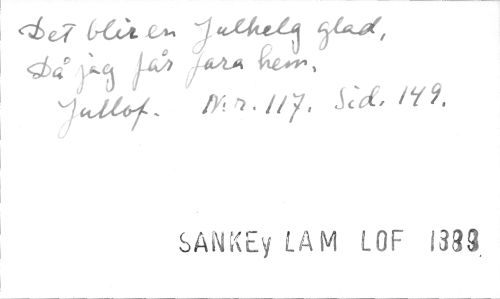 Det blir en Julhelg glad,
Då jag får fara hem.
Jullof. N:r. 117. Sid. 149.
SANKEy LAM LOF 1883